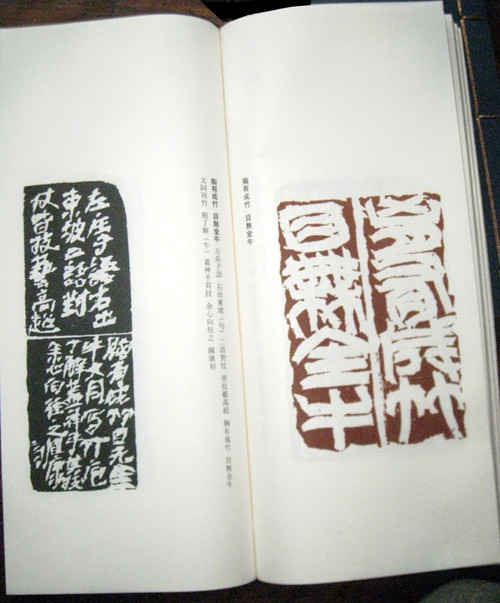 胸有成竹 目無全牛
胸有成竹
目無全牛
胸有成竹 目無全牛 左莊子語 右出東坡（句）二語對仗 皆技藝高超 胸有成竹 目無全牛
文同寫竹 庖丁解（牛）蓋神乎其技 余心向往之 國康刻
左庄子語右出
東坡二語對
仗皆技藝高超
胸有成竹目无全
牛文同写竹庖
丁解盖神乎其技
余心向往之國康